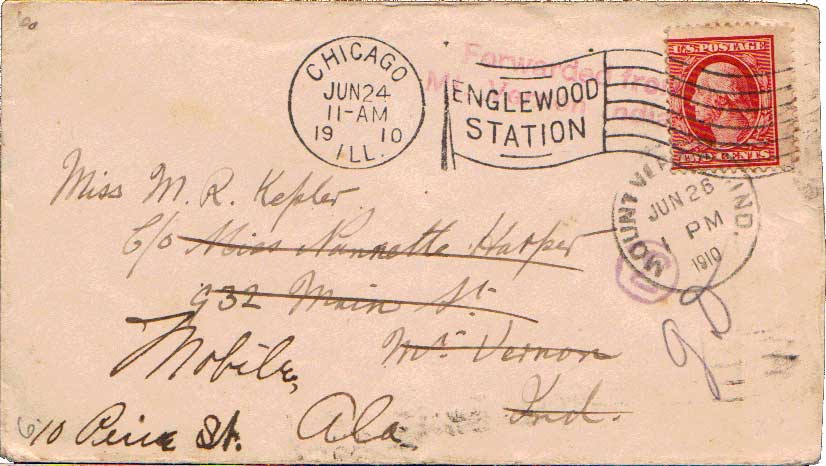 CHICAGO
JUN 24
11-AM
19 10
ILL.
ENGLEWOOD
STATION
Forwarded from
Mt. Vernon, India
U.S. POSTAGE
TWO CENTS
MOUNT VER IND.
JUN 26
1 PM
1910
Miss M. R. Kepler
C/o Miss Nannette Harper
932 Main St.
Mt. Vernon
Ind.
Mobile,
Ala
610 St.